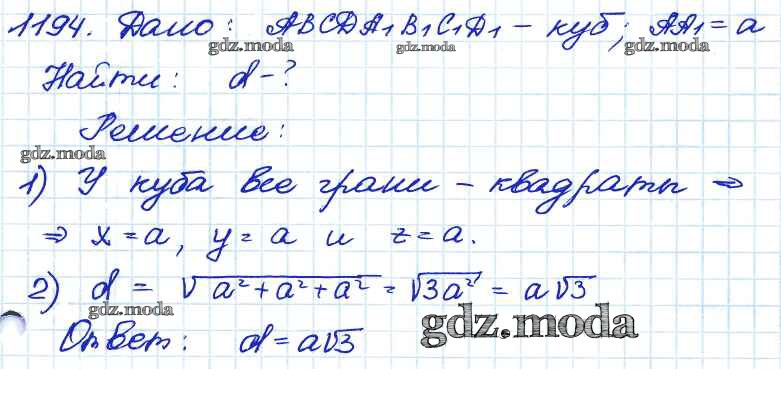 1194. Дано: ABCDA₁B₁C₁D₁ - куб; AA₁ = a
gdz.moda gdz.moda gdz.moda
Найти: d - ?
Решение:
gdz.moda
1) У куба все грани - квадраты ⇒
⇒ x = a, y = a и z = a.
2) d = √(a² + a² + a²) = √(3a²) = a√3
gdz.moda gdz.moda
Ответ: d = a√3